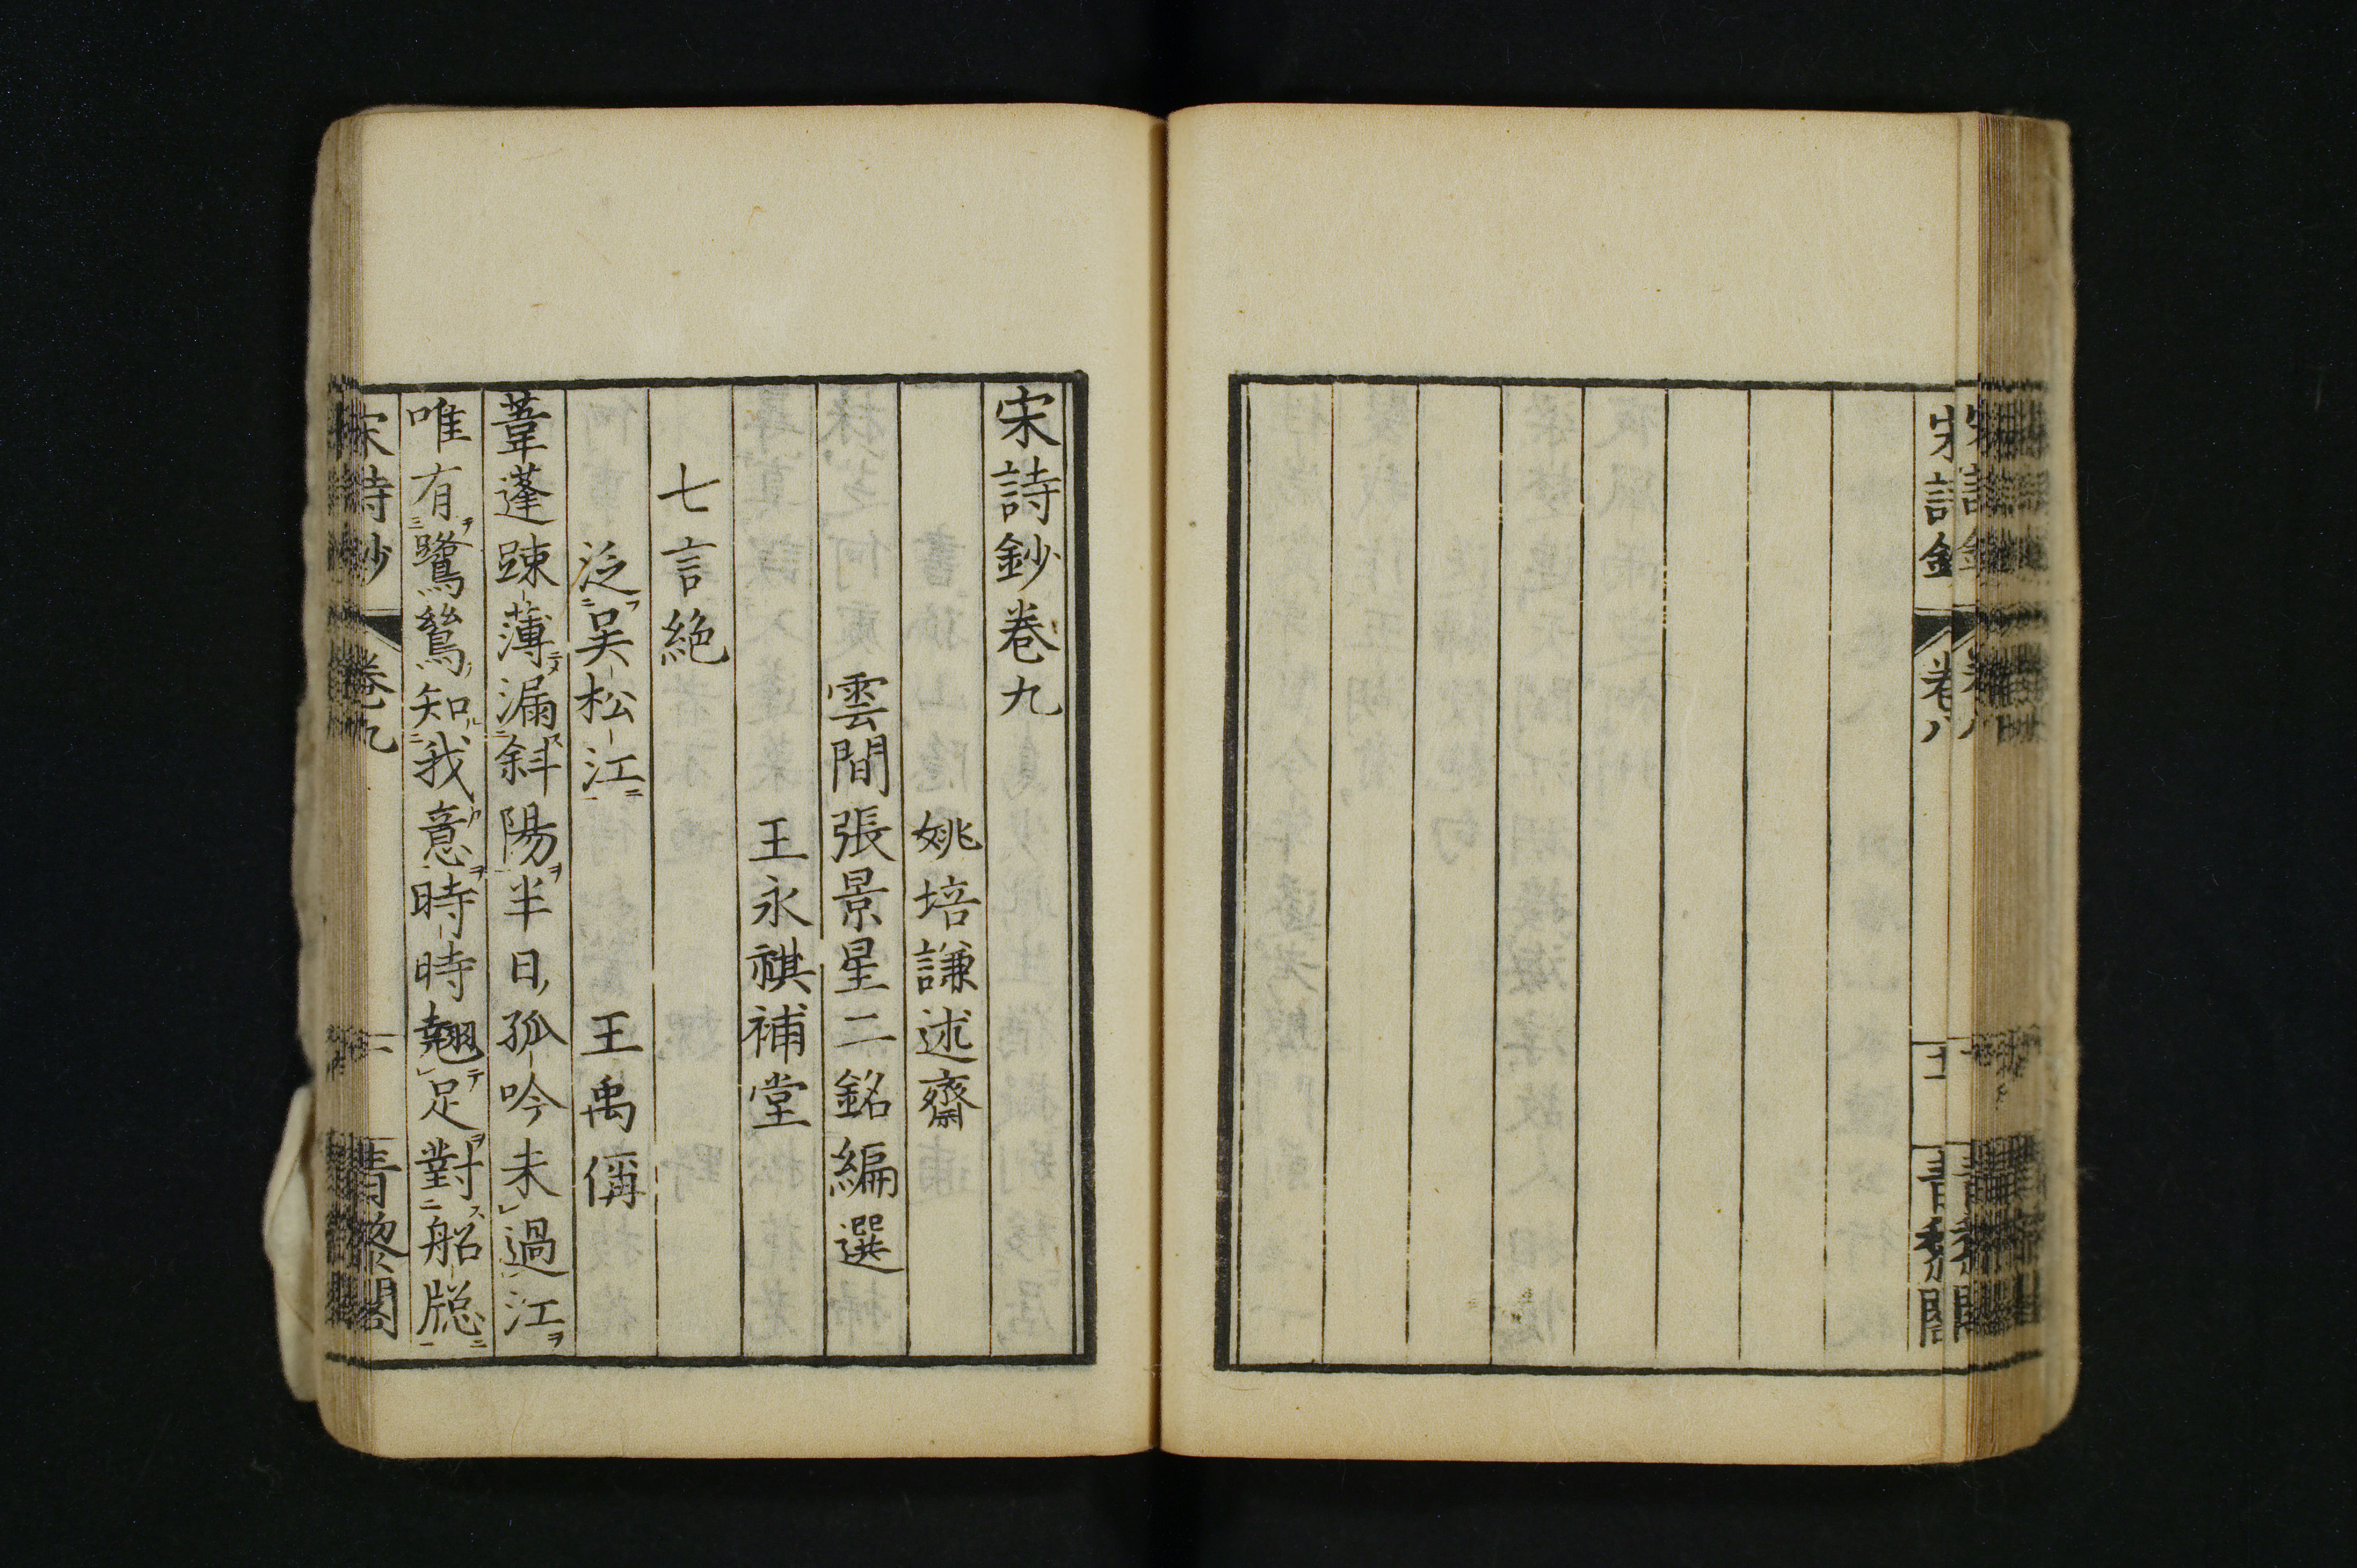 宋詩鈔
卷八
十
青藜閣
宋詩鈔卷九
姚培謙述齋
雲間張景星二銘編選
王永祺補堂
七言絶
泛吴松江　王禹偁
葦蓬踈薄漏斜陽半日孤吟未過江
唯有鷺鷥知我意時時翹足對船牎
宋詩鈔
卷九
一
青藜閣